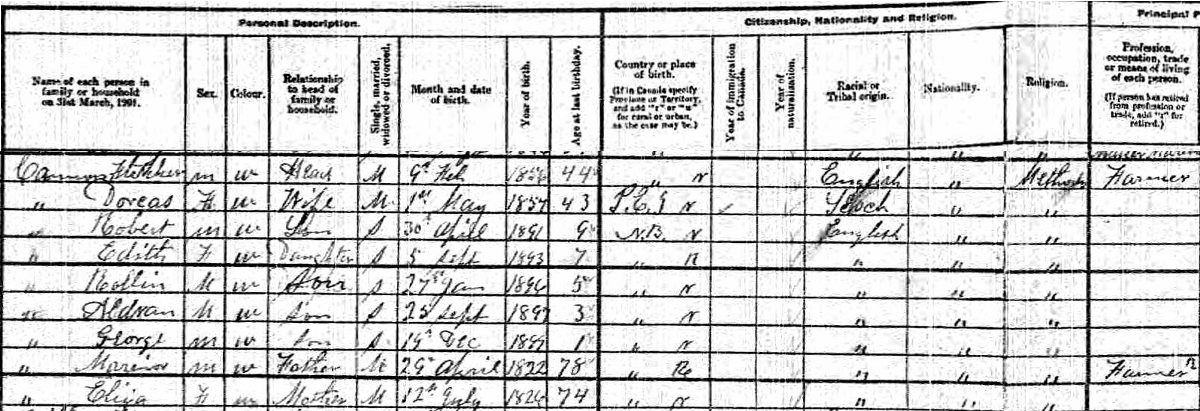 Personal Description. Citizenship, Nationality and Religion. Principal
Name of each person in family or household on 31st March, 1901. Sex. Colour. Relationship to head of family or household. Single, married, widowed or divorced. Month and date of birth. Year of birth. Age at last birthday. Country or place of birth. (If in Canada specify Province or Territory, and add "r" or "u" for rural or urban, as the case may be.) Year of immigration to Canada. Year of naturalization. Racial or Tribal origin. Nationality. Religion. Profession, occupation, trade or means of living of each person. (If person has retired from profession or trade, add "r" for retired.)
" " " "
Fletcher m w Head M 9th Feb 1856 44 " r English " Farmer
" Dorcas F w Wife M 1st May 1857 43 P.E.I r Scoch " "
" Robert m w Son S 30th April 1891 9 N.B. r English " "
" Edith F w Daughter S 5 Sept 1893 7 " R " " "
" Rollin M w Son S 27th Jan 1896 5 " r " " "
" M w Son S 25 Sept 1897 3 " r " " "
" George m w Son S 19th Dec 1899 1 " r " " "
" m w Father M 29th April 1822 78 " R " " " Farmer R
" Eliza F w Mother M 12th July 1826 74 " R " " "